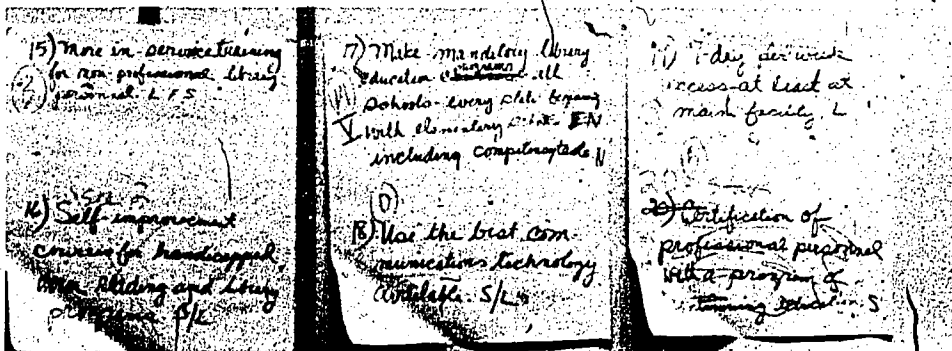 15) More in-service training
for non-professional library
personnel L F S
16) Self-improvement
courses for handicapped
reading and library
programs S/L
17) Make mandatory library
education programs all
schools - every state begining
with elementary EN
including competency tests N
18) Use the best com-
munications technology
available. S/L
7-day per week
access-at least at
main facility L
20) Certification of
professional personnel
with a program of
training education S